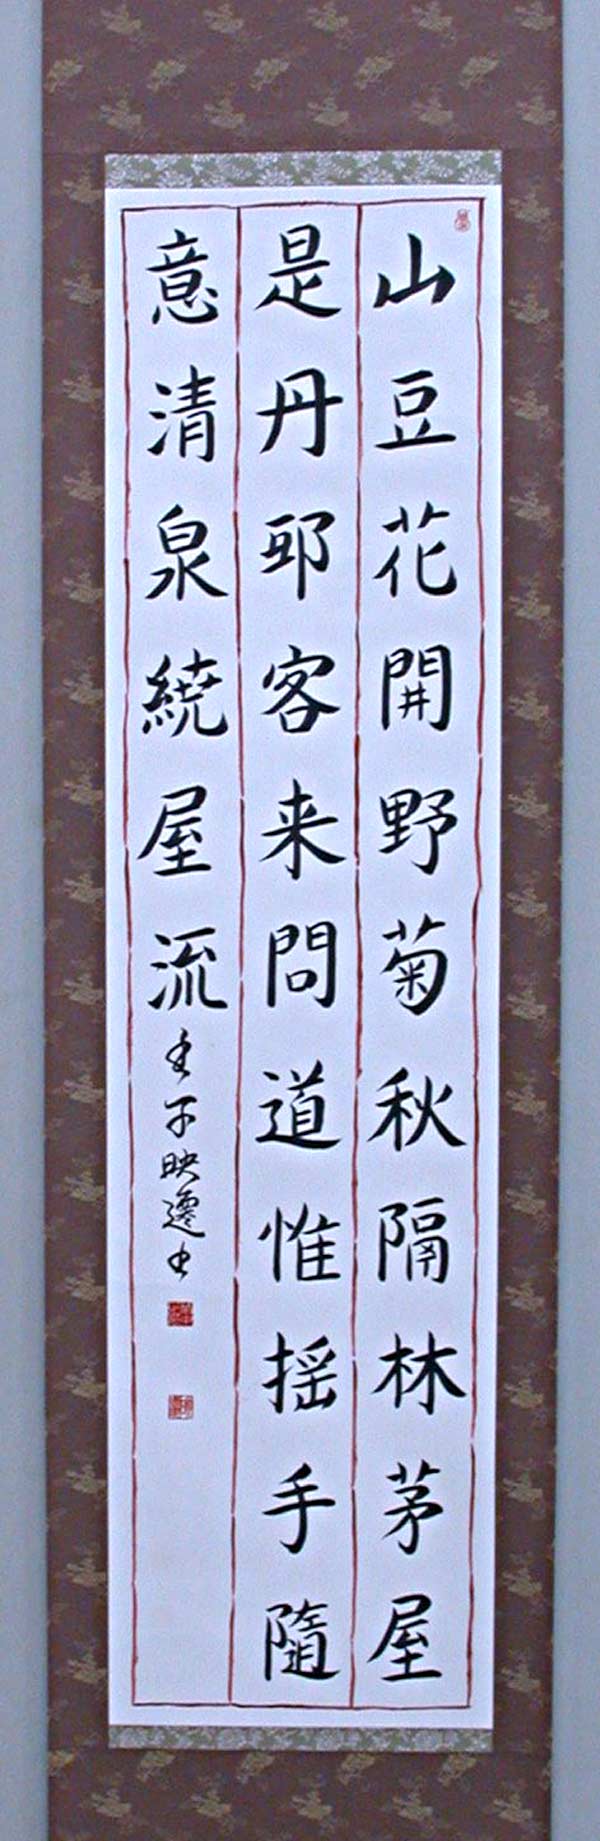 山豆花開野菊秋隔林茅屋
是丹邱客来問道惟揺手隨
意清泉繞屋流
壬子映遷書